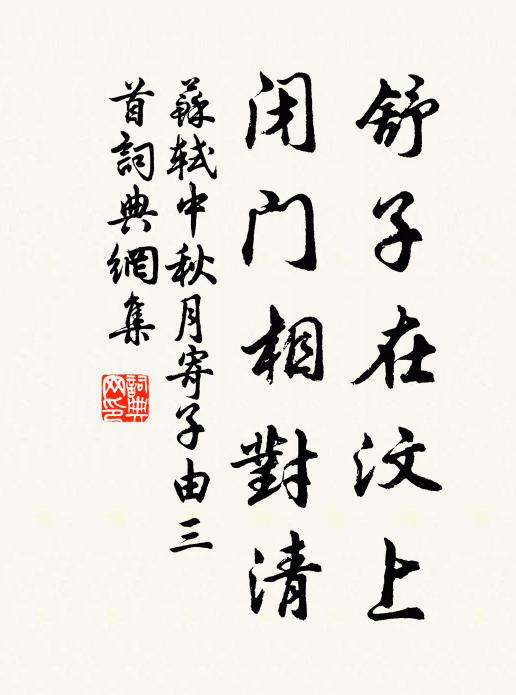 舒子在汶上
闭門相對清
蘇軾中秋月寄子由三
首詞典網集
詞典网印